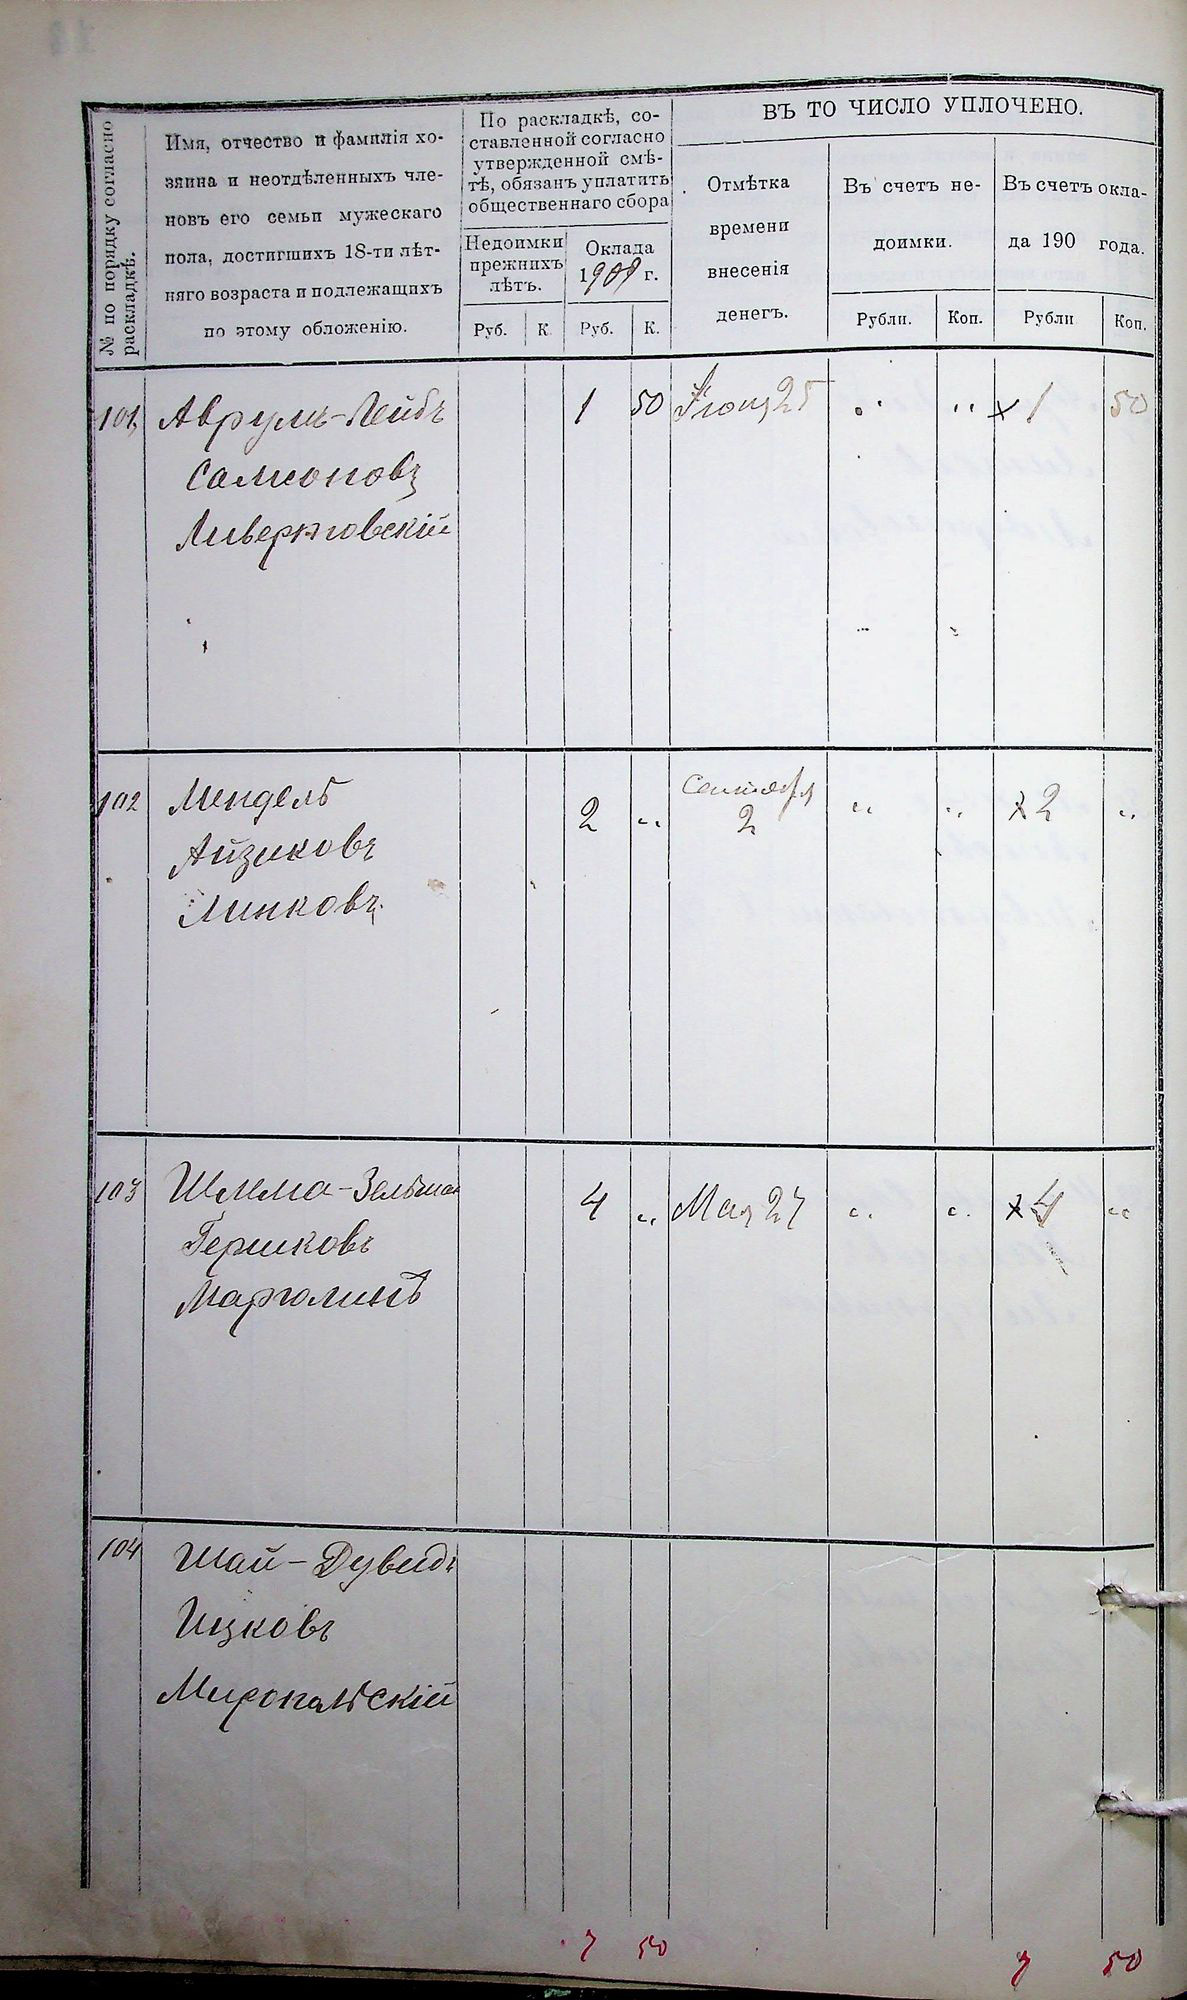 № по порядку согласно
раскладкѣ.
Имя, отчество и фамилія хо-
зяина и неотдѣленныхъ чле-
новъ его семьи мужескаго
пола, достигшихъ 18-ти лѣт-
няго возраста и подлежащихъ
по этому обложенію.
По раскладкѣ, со-
ставленной согласно
утвержденной смѣ-
тѣ, обязанъ уплатить
общественнаго сбора
Недоимки
прежнихъ
лѣтъ.
Оклада
1909 г.
Руб. К. Руб. К.
ВЪ ТО ЧИСЛО УПЛОЧЕНО.
Отмѣтка
времени
внесенія
денегъ.
Въ счетъ не-
доимки.
Въ счетъ окла-
да 190 года.
Рубли. Коп. Рубли Коп.
101 Аврумъ-Лейбъ 1 50 Іюня 25 " " x 1 50
Самсоновъ
Ливерповскій
102 Мендель 2 " Сентября 2 " " x 2 "
Айзиковъ
Линковъ
103 Шлема-Зельман 4 " Мая 27 " " x 4 "
Гершковъ
Марголинъ
104 Шай-Дувидъ
Ицковъ
Миропольскій
7 50 7 50